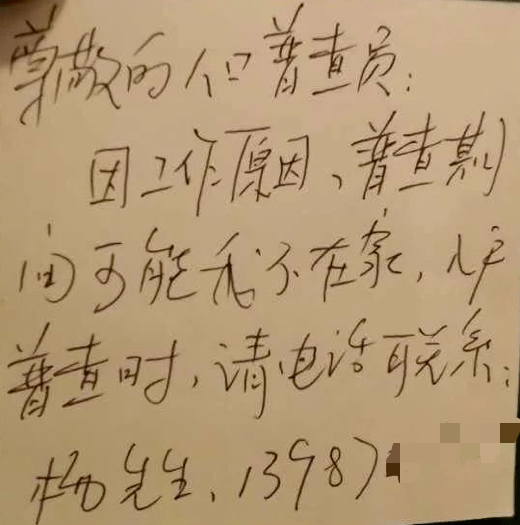 尊敬的人口普查员：
因工作原因、普查期
间可能我不在家，入户
普查时，请电话联系：
杨先生、13987